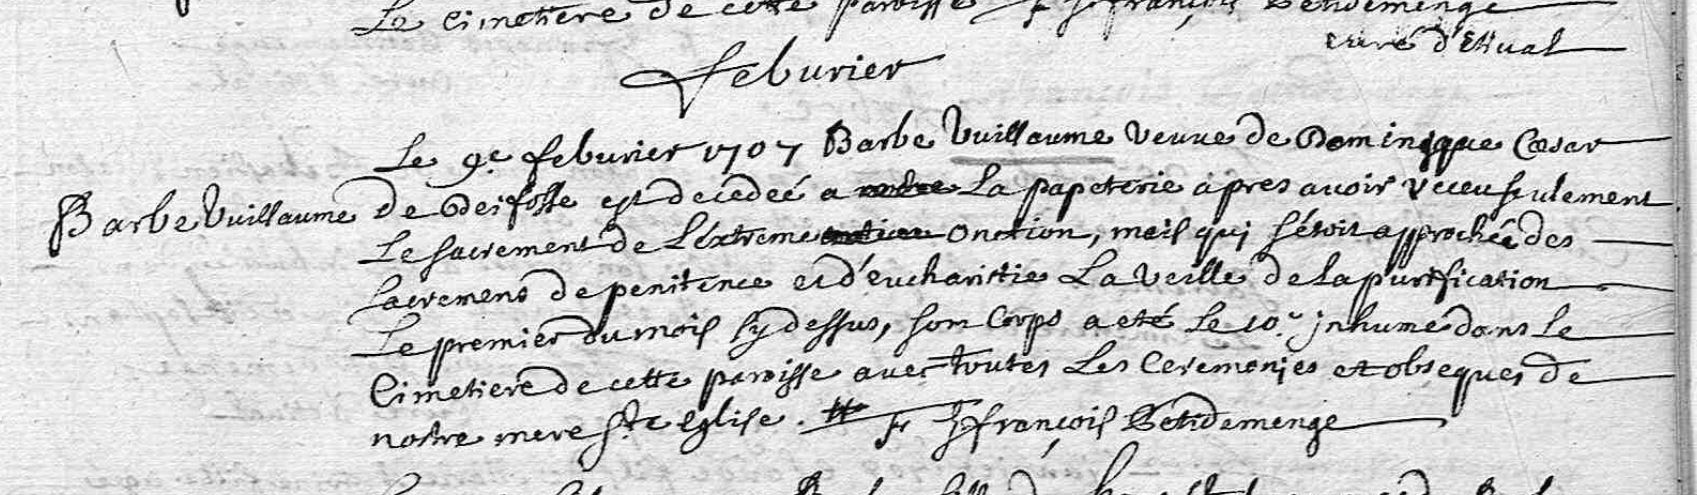 Le Cimetiere de cette paroisse F françois Petidemenge
curé d'Etival
feburier
Le 9.e feburier 1707 Barbe Vuillaume veuve de Dominique Cæsar
Barbe Vuillaume
de Deifosse est decedeé a la papeterie apres avoir receu seulement
Le sacrement de L'extreme onction, mais qui s'étoit approchée des
sacremens de penitence et d'eucharistie La veille de la purification
Le premier du mois sy dessus, son Corps a eté le 10.e jnhumé dans le
Cimetiere de cette paroisse avec toutes Les Ceremonjes et obseques de
nostre mere s.te Eglise. F françois Petidemenge